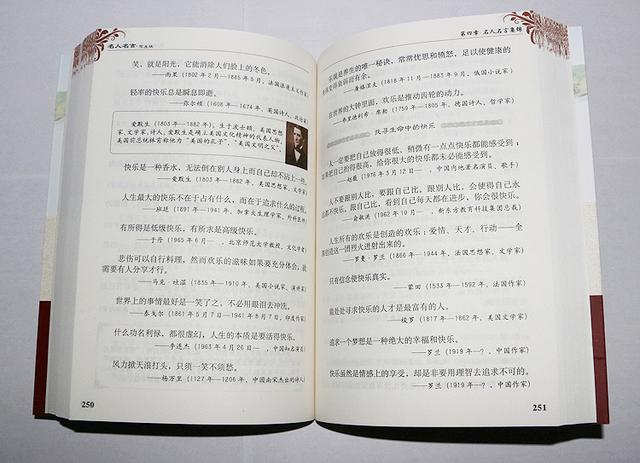 名人名言·
笑，就是阳光，它能消除人们脸上的冬色。
——雨果（1802年2月—1885年5月，法国浪漫主义作家）
轻率的快乐总是瞬息即逝。
——弥尔顿（1608年—1674年，英国诗人、政论家）
爱默生（1803年—1882年），生于波士顿，美国思想
家、文学家、诗人。爱默生是确立美国文化精神的代表人物，
美国前总统林肯称他为“美国的孔子”、“美国文明之父”。
快乐是一种香水，无法倒在别人身上而自己却不沾上一些。
——爱默生（1803年—1882年，美国思想家、文学家）
人生最大的快乐不在于占有什么，而在于追求什么的过程。
——班廷（1891年—1941年，加拿大生理学家、外科医师）
有所得是低级快乐，有所求是高级快乐。
——于丹（1965年6月— ，北京师范大学教授，文化学者）
悲伤可以自行料理，然而欢乐的滋味如果要充分体会，就
需要有人分享才行。
——马克·吐温（1835年—1910年，美国小说家、演讲家）
世界上的事情最好是一笑了之，不必用眼泪去冲洗。
——泰戈尔（1861年5月7日—1941年8月7日，印度作家）
什么功名利禄，都很虚幻，人生的本质是要活得快乐。
——李连杰（1963年4月26日— ，中国知名演员）
风力掀天浪打头，只须一笑不须愁。
——杨万里（1127年—1206年，中国南宋杰出的诗人）
250
第四章 名人名言集锦
乐观是养生的唯一秘诀，常常忧思和愤怒，足以使健康的
变得衰弱而有余。
——屠格涅夫（1818年11月—1883年9月，俄国小说家）
在世界的大钟里面，欢乐是推动齿轮的动力。
——弗里德利希·席勒（1759年—1805年，德国诗人、哲学家）
找寻生命中的快乐
人一定要把自己放得很低，稍微有一点点快乐都能感受到；
把自己抬得很高，给你很大的快乐都未必能感受到。
——赵薇（1976年3月12日— ，中国内地著名演员、歌手）
人不要跟别人比，要跟自己比。跟别人比，会使得自己永
都不快乐。跟自己比，看到自己每天都在进步，你会很快乐。
——俞敏洪（1962年10月— ，新东方教育科技集团总裁）
人生所有的欢乐是创造的欢乐：爱情、天才、行动——全
创造这一团烈火迸射出来的。
——罗曼·罗兰（1866年—1944年，法国思想家、文学家）
只有信念使快乐真实。
——蒙田（1533年—1592年，法国作家）
能处处寻求快乐的人才是最富有的人。
——梭罗（1817年—1862年，美国文学家）
追求一个梦想是一种绝大的幸福和快乐。
——罗兰（1919年—？，中国作家）
快乐虽然是情感上的享受，却是非要用理智去追求不可的。
——罗兰（1919年—？，中国作家）
251